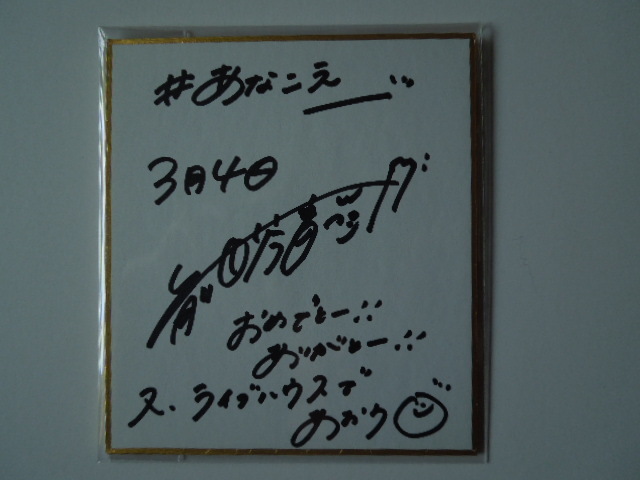 #あなこえ
3月4日
おめでとー!!
ありがとー!!
又、ライブハウスで
あおう